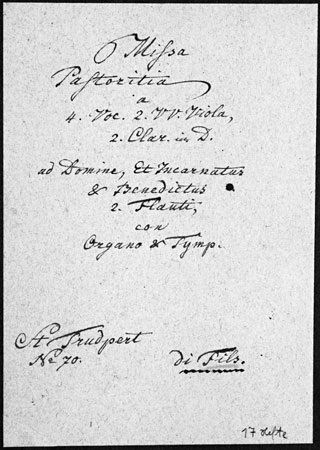 Missa
Pastoritia
a
4. Voc. 2. VV. Viola,
2. Clar. in D.
ad Domine, Et Incarnatus
& Benedictus
2. Flauti,
con
Organo & Tymp.
St Trudpert
No 70.
di Fils.
17 Hefte